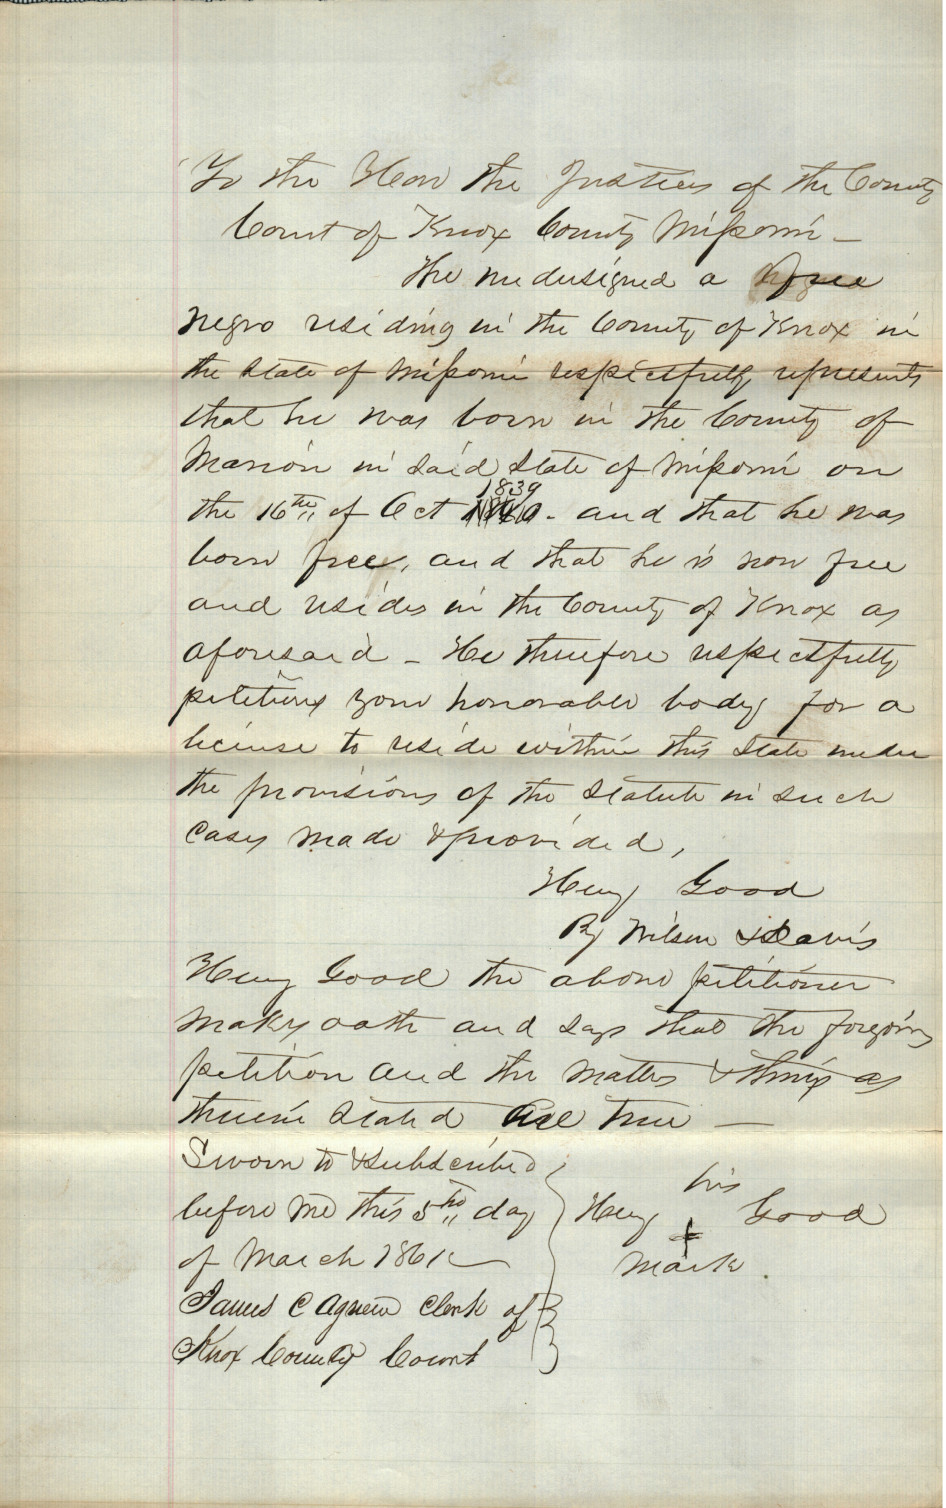 To the Hon the Justices of the County
Court of Knox County Missouri –
The undersigned a free
negro residing in the County of Knox in
the State of Missouri respectfully represents
that he was born in the County of
Marion in said State of Missouri on
the 16th of Oct 1839 - and that he was
born free, and that he is now free
and resides in the County of Knox as
aforesaid – He therefore respectfully
petitions your honorable body for a
license to reside within this State under
the provisions of the Statute in such
cases made & provided,
Henry Good
By Wilson & Davis
Henry Good the above petitioner
makes oath and says that the foregoing
petition and the matters & things as
therein stated are true —
Sworn to & subscribed
before me this 5th day
of March 1861
James C Agnew Clerk of
Knox County Court
his
Henry + Good
mark.